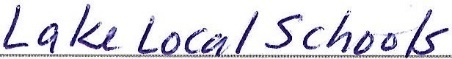 Lake Local Schools